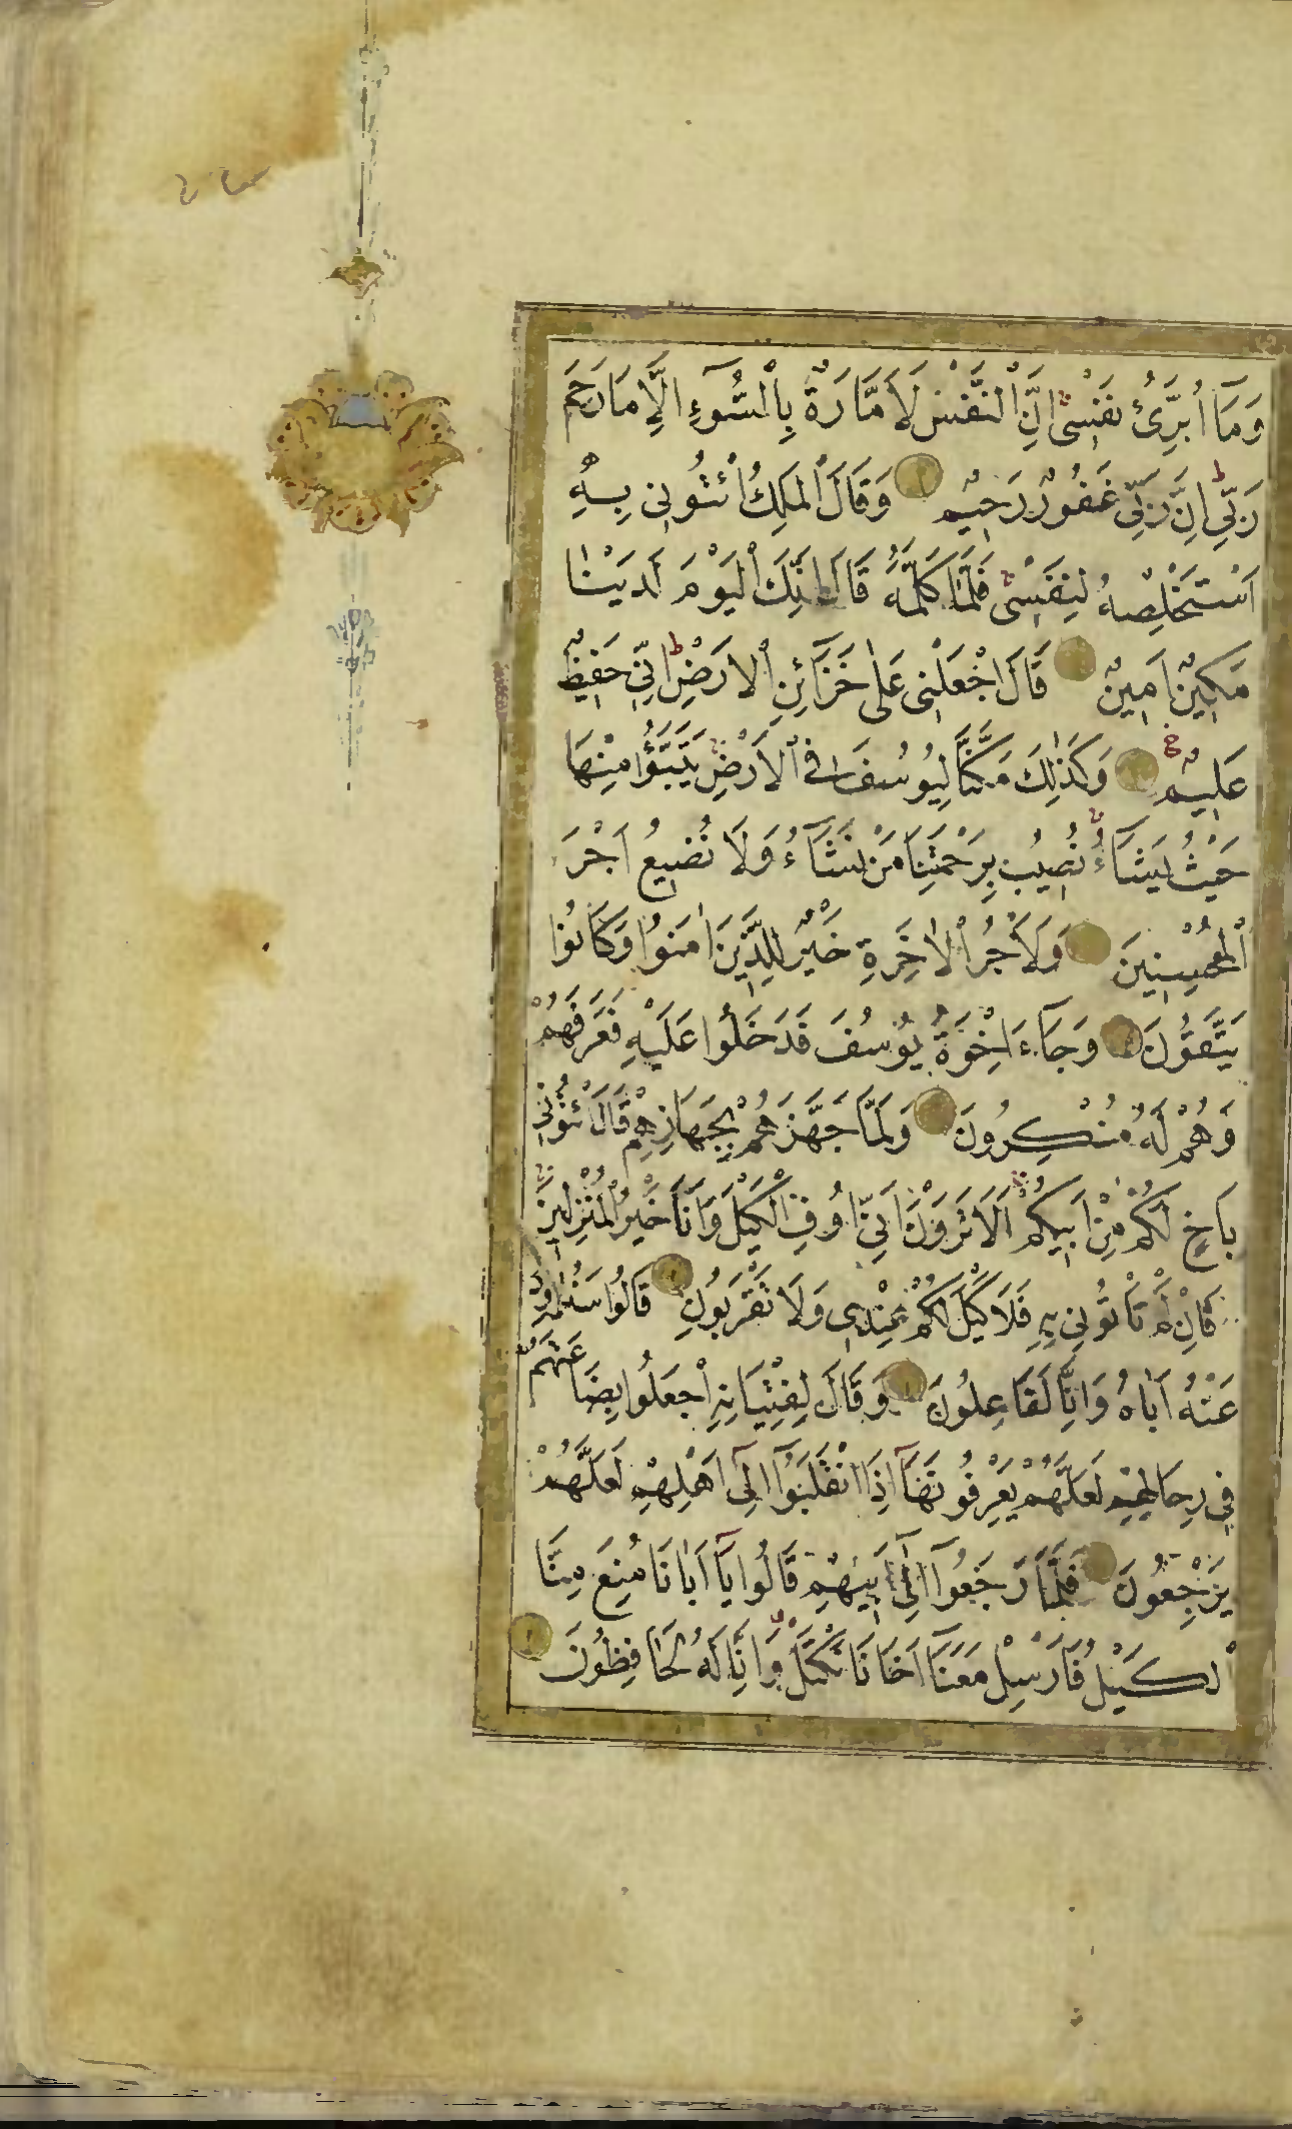 وَمَآ اُبَرِّئُ نَفْسِى اِنَّ النَّفْسَ لَاَمَّارَةٌ بِالسُّوٓءِ اِلَّا مَا رَحِمَ
رَبِّى اِنَّ رَبِّى غَفُورٌ رَحِيمٌ وَقَالَ الْمَلِكُ ائْتُونِى بِهِ
اَسْتَخْلِصْهُ لِنَفْسِى فَلَمَّا كَلَّمَهُ قَالَ اِنَّكَ الْيَوْمَ لَدَيْنَا
مَكِينٌ اَمِينٌ قَالَ اجْعَلْنِى عَلٰى خَزَآئِنِ الْاَرْضِ اِنِّى حَفِيظٌ
عَلِيمٌ وَكَذٰلِكَ مَكَّنَّا لِيُوسُفَ فِى الْاَرْضِ يَتَبَوَّؤُا مِنْهَا
حَيْثُ يَشَآءُ نُصِيبُ بِرَحْمَتِنَا مَنْ نَشَآءُ وَلَا نُضِيعُ اَجْرَ
الْمُحْسِنِينَ وَلَاَجْرُ الْاٰخِرَةِ خَيْرٌ لِلَّذِينَ اٰمَنُوا وَكَانُوا
يَتَّقُونَ وَجَآءَ اِخْوَةُ يُوسُفَ فَدَخَلُوا عَلَيْهِ فَعَرَفَهُمْ
وَهُمْ لَهُ مُنْكِرُونَ وَلَمَّا جَهَّزَهُمْ بِجَهَازِهِمْ قَالَ ائْتُونِى
بِاَخٍ لَكُمْ مِنْ اَبِيكُمْ اَلَا تَرَوْنَ اَنِّى اُوفِى الْكَيْلَ وَاَنَا خَيْرُ الْمُنْزِلِينَ
فَاِنْ لَمْ تَاْتُونِى بِهِ فَلَا كَيْلَ لَكُمْ عِنْدِى وَلَا تَقْرَبُونِ قَالُوا سَنُرَاوِدُ
عَنْهُ اَبَاهُ وَاِنَّا لَفَاعِلُونَ وَقَالَ لِفِتْيَانِهِ اجْعَلُوا بِضَاعَتَهُمْ
فِى رِحَالِهِمْ لَعَلَّهُمْ يَعْرِفُونَهَآ اِذَا انْقَلَبُوٓا اِلٰٓى اَهْلِهِمْ لَعَلَّهُمْ
يَرْجِعُونَ فَلَمَّا رَجَعُوٓا اِلٰٓى اَبِيهِمْ قَالُوا يَآ اَبَانَا مُنِعَ مِنَّا
الْكَيْلُ فَاَرْسِلْ مَعَنَآ اَخَانَا نَكْتَلْ وَاِنَّا لَهُ لَحَافِظُونَ